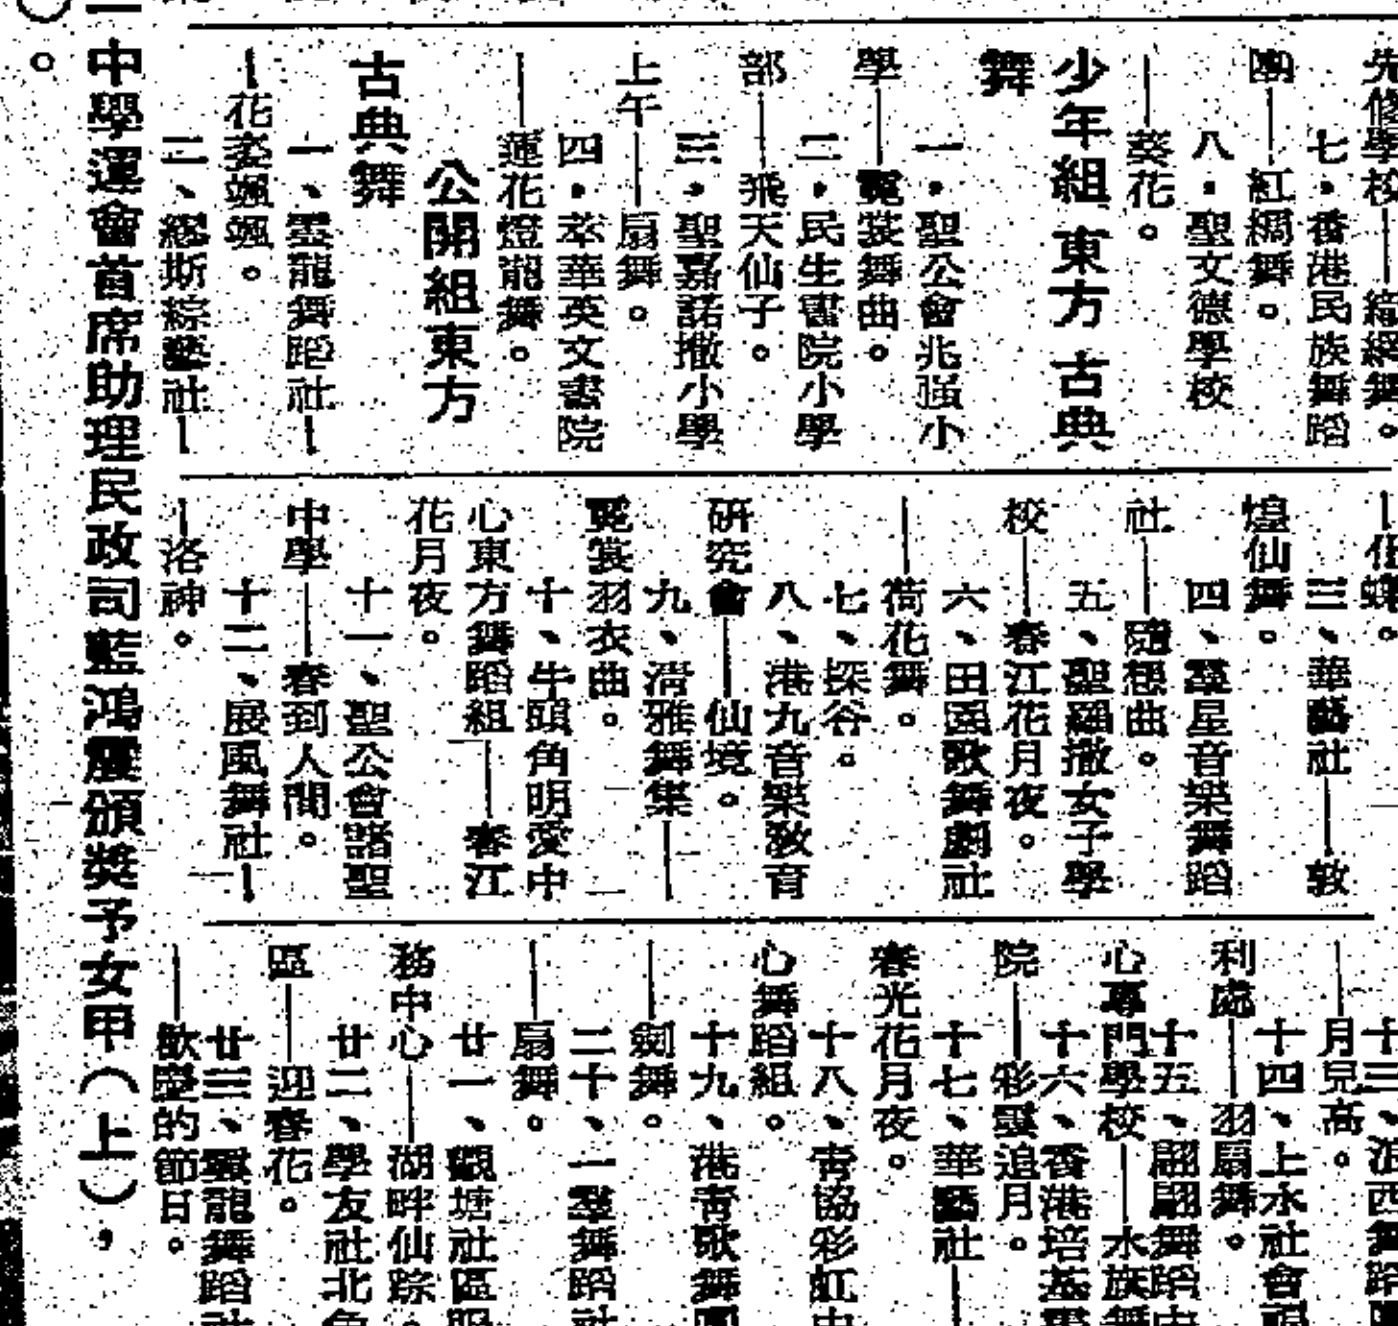 先修學校——綵綢舞。
七．香港民族舞蹈
團——紅綢舞。
八．聖文德學校
——葵花。
少年組東方古典
舞
一．聖公會兆強小
學——霓裳舞曲。
二．民生書院小學
部——飛天仙子。
三．聖嘉諾撒小學
上午——扇舞。
四．萃華英文書院
——蓮花燈龍舞。
公開組東方
古典舞
一、雲龍舞蹈社——
花姿颯颯。
二、繆斯綜藝社——
三、華藝社——敦
煌仙舞。
四、羣星音樂舞蹈
社——隨想曲。
五、聖羅撒女子學
校——春江花月夜。
六、田園歌舞劇社
——荷花舞。
七、探谷。
八、港九音樂教育
研究會——仙境。
九、清雅舞集——
霓裳羽衣曲。
十、牛頭角明愛中
心東方舞蹈組——春江
花月夜。
十一、聖公會諸聖
中學——春到人間。
十二、展風舞社——
洛神。
——月兒高。
十四、上水社會福
利處——羽扇舞。
十五、翩翩舞蹈中
心專門學校——水族舞
十六、香港培基書
院——彩雲追月。
十七、華藝社——
春光花月夜。
十八、青協彩虹中
心舞蹈組。
十九、港青歌舞團
——劍舞。
二十、一羣舞蹈社
——扇舞。
廿一、觀塘社區服
務中心——湖畔仙踪。
廿二、學友社北角
區——迎春花。
廿三、雲龍舞蹈社
——歡慶的節日。
中學運會首席助理民政司藍鴻震頒獎予女甲（上），